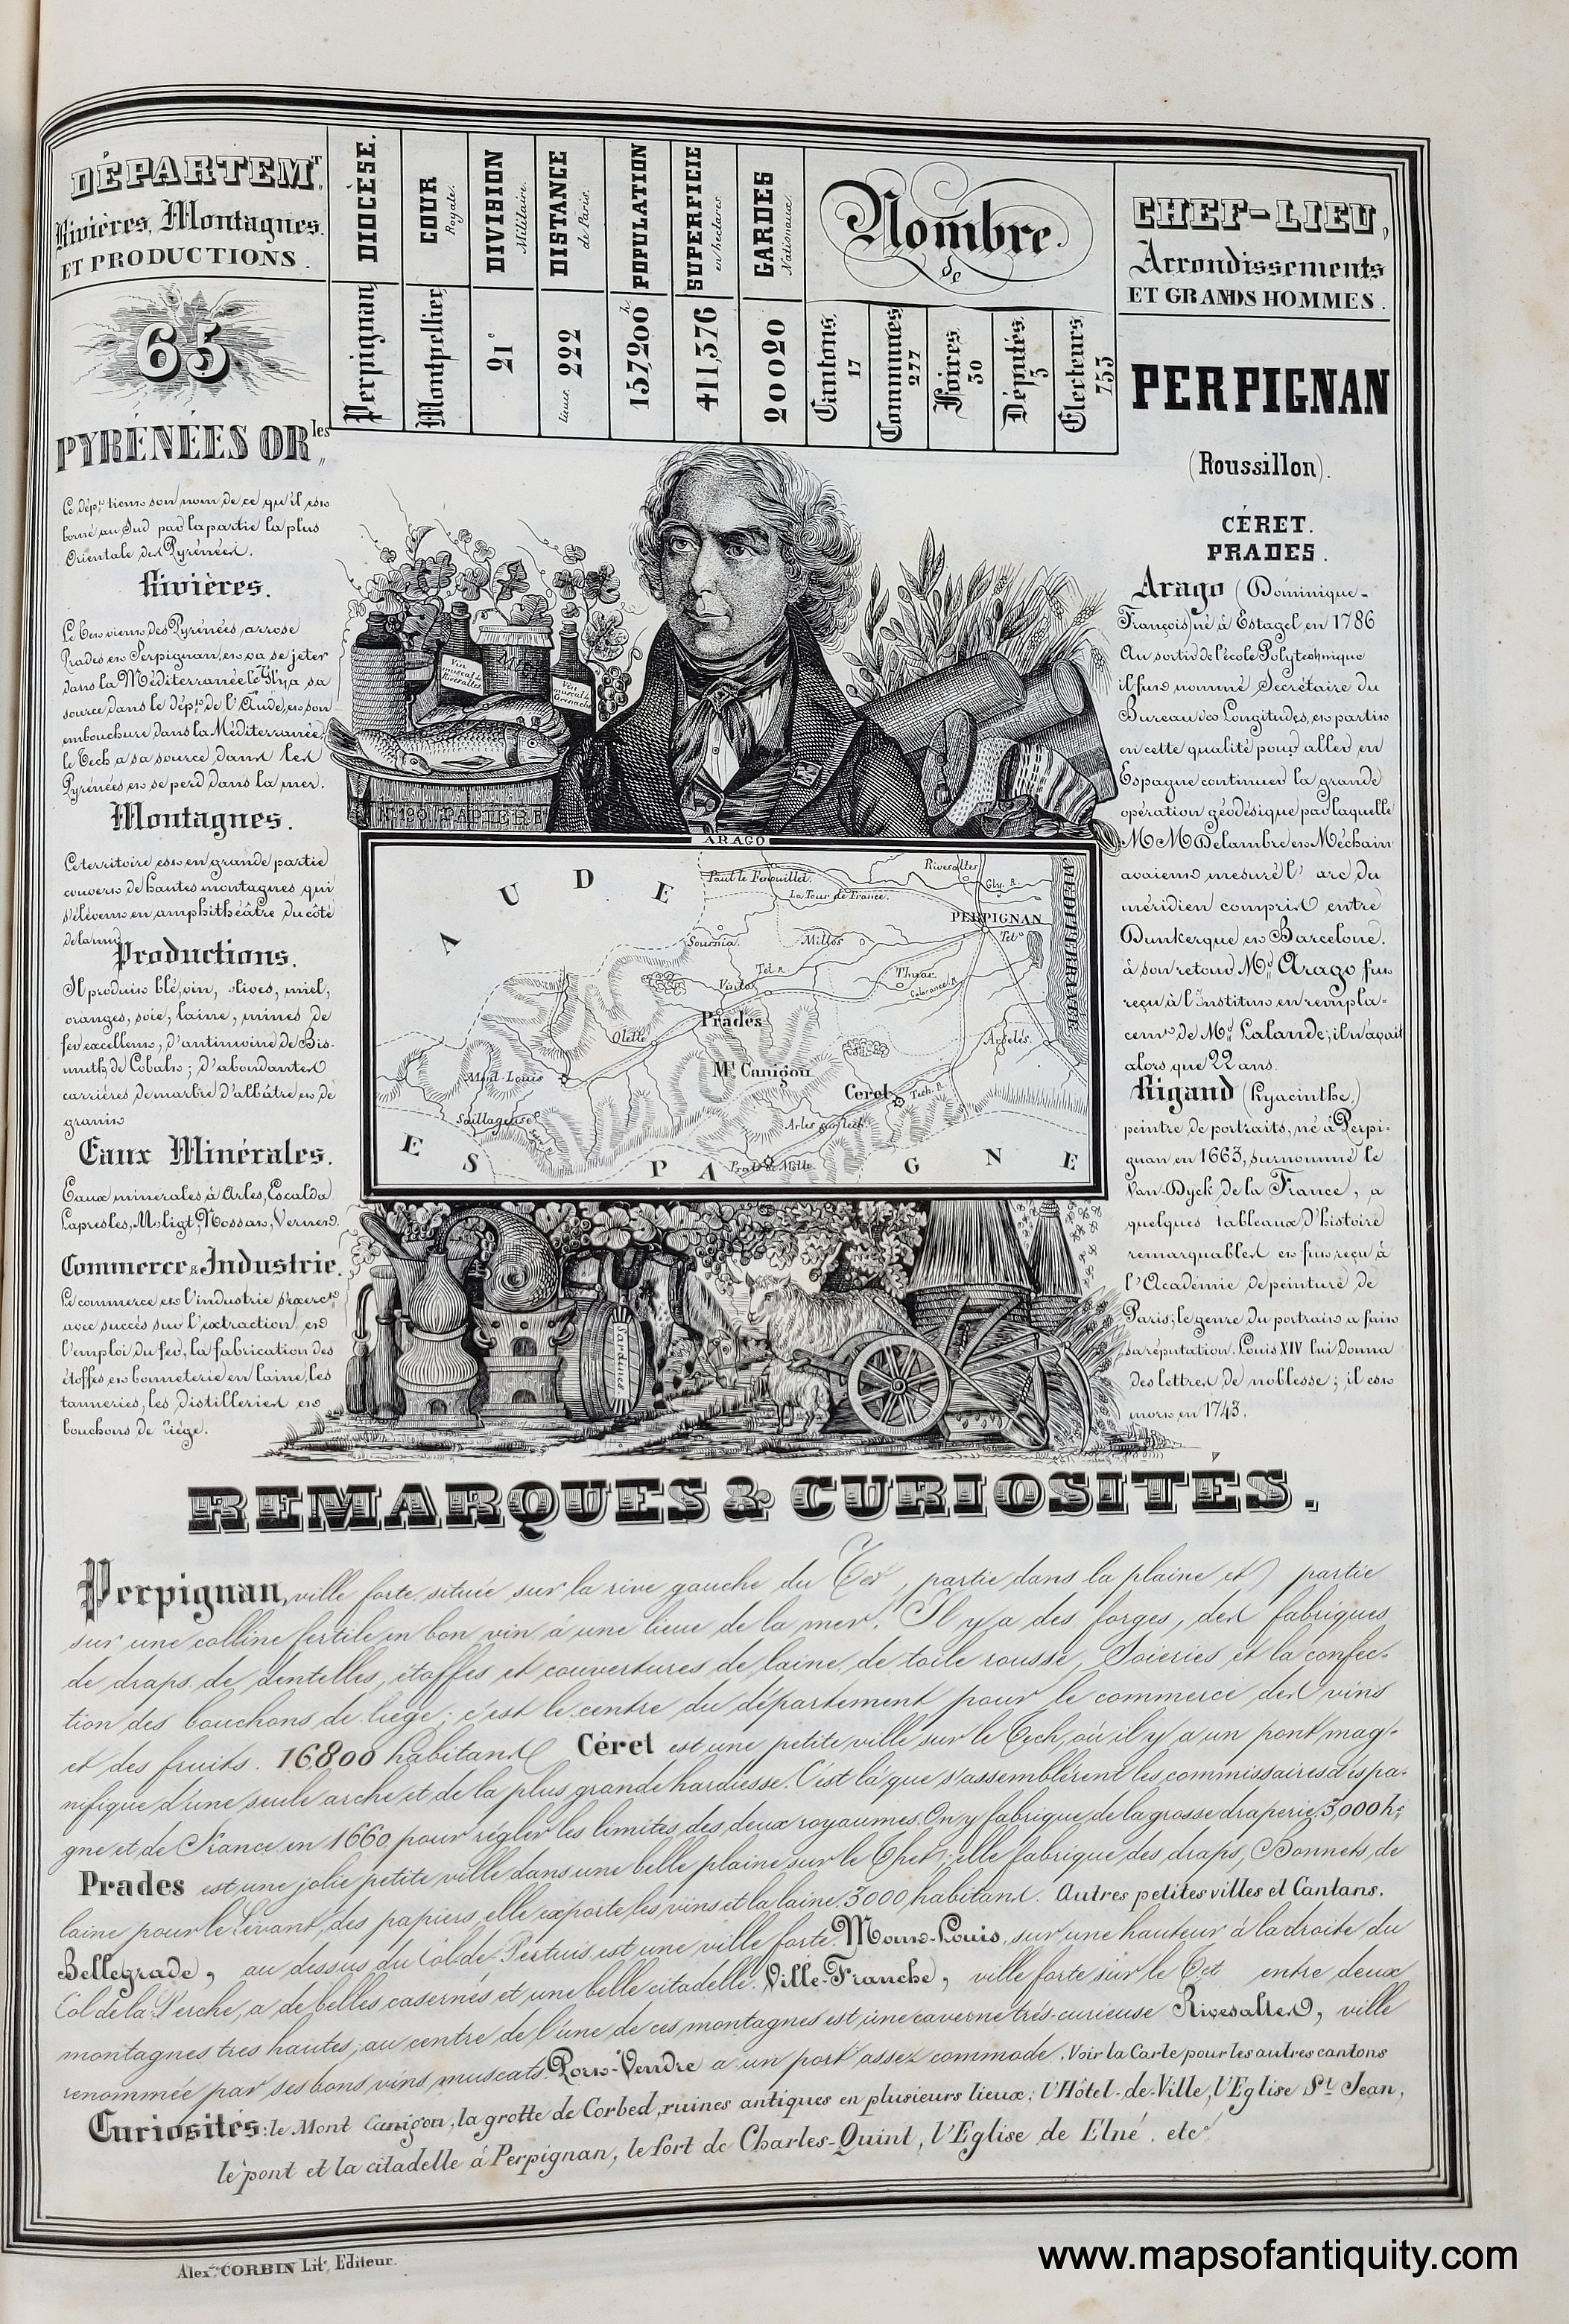 DÉPARTEM.T
Rivières, Montagnes.
ET PRODUCTIONS.
DIOCÈSE.
Perpignan
COUR
Royale.
Montpellier
DIVISION
Militaire.
21e
DISTANCE
de Paris.
lieues. 222
POPULATION
157200 h.
SUPERFICIE
en hectares
411,376
GARDES
Nationaux
20020
Nombre
de
Cantons.
17
Communes
277
Foires.
30
Députés.
3
Electeurs.
753
CHEF-LIEU,
Arrondissements
ET GRANDS HOMMES.
65
PYRÉNÉES OR.les
Ce dép.t tient son nom de ce qu'il est
borné au Sud par la partie la plus
Orientale des Pyrénées.
Rivières.
Le Tet vient des Pyrénées, arrose
Prades et Perpignan, et va se jeter
dans la Méditerranée le Gly a sa
source dans le dép.t de l'Aude, et son
embouchure dans la Méditerranée,
le Tech a sa source dans les
Pyrénées et se perd dans la mer.
Montagnes.
Ce territoire est en grande partie
couvert de hautes montagnes qui
s'élèvent en amphithéâtre du côté
de la mer
Productions.
Il produit blé, vin, olives, miel,
oranges, soie, laine, mines de
fer excellent, d'antimoine de Bis-
muth, de Cobalt; d'abondantes
carrières de marbre d'albâtre et de
granit
Eaux Minérales.
Eaux minérales, à Arles, Escalda
Lapresles, Moligt, Nossas, Vernet.
Commerce & Industrie.
Le commerce et l'industrie s'exerct
avec succès sur l'extraction et
l'emploi du fer, la fabrication des
étoffes et bonneterie en laine, les
tanneries, les distilleries et
bouchons de liége.
Vin
muscat de
Rivesaltes
Miel
Vin
muscat de
Grenache
PAPIER
ARAGO
AUDE
Paul le Fenouillet
Rivesaltes
Gly. R.
La Tour de France.
PERPIGNAN
MÉDITERRANÉE
Sournia.
Millas
Tet
Tet R.
Vinca
Thuir
Prades
Olette
Argelès.
Mont-Louis
Mt. Canigou
Ceret
Tech. R.
Saillagouse
Arles sur Tech
Prats de Mollo
ESPAGNE
Sardines
PERPIGNAN
(Roussillon).
CÉRET.
PRADES.
Arago (Dominique-
François) né à Estagel en 1786
Au sortir de l'école Polytechnique
il fut nommé Secrétaire du
Bureau des Longitudes, et partit
en cette qualité pour aller en
Espagne continuer la grande
opération géodésique par laquelle
MM Delambre et Méchain
avaient mesuré l'arc du
méridien compris entre
Dunkerque et Barcelone.
à son retour Mr. Arago fut
reçu à l'Institut en rempla-
cemt de Mr. Lalande; il n'avait
alors que 22 ans.
Rigaud (Hyacinthe.)
peintre de portraits, né à Perpi-
gnan en 1663, surnommé le
Van-Dyck de la France, a
quelques tableaux d'histoire
remarquables et fut reçu à
l'Académie de peinture de
Paris; le genre du portrait a fait
sa réputation. Louis XIV lui donna
des lettres de noblesse; il est
mort en 1743.
REMARQUES & CURIOSITÉS.
Perpignan, ville forte située sur la rive gauche du Tet, partie dans la plaine et partie
sur une colline fertile en bon vin à une lieue de la mer. Il y a des forges, des fabriques
de draps de dentelles, étoffes et couvertures de laine, de toile rousse, Soieries et la confec-
tion des bouchons de liége; c'est le centre du département pour le commerce des vins
et des fruits. 16800 habitans Céret est une petite ville sur le Tech, où il y a un pont mag-
nifique d'une seule arche et de la plus grande hardiesse. C'est là que s'assemblèrent les commissaires d'Espa-
gne et de France en 1660 pour régler les limites des deux royaumes. On y fabrique de la grosse draperie 3,000 h.s
Prades est une jolie petite ville dans une belle plaine sur le Thet; elle fabrique des draps, Bonnets de
laine pour le Levant, des papiers, elle exporte les vins et la laine. 3000 habitans. Autres petites villes et Cantons.
Bellegrade, au dessus du Col de Pertuis est une ville forte. Mont-Louis, sur une hauteur à la droite du
Col de la Perche, a de belles casernes et une belle citadelle. Ville-Franche, ville forte sur le Tet entre deux
montagnes très hautes; au centre de l'une de ces montagnes est une caverne très-curieuse Rivesaltes, ville
renommée par ses bons vins muscats. Port-Vendre a un port assez commode. Voir la Carte pour les autres cantons
Curiosités: le Mont Canigou, la grotte de Corbed, ruines antiques en plusieurs lieux; l'Hôtel-de-Ville, l'Eglise St. Jean,
le pont et la citadelle à Perpignan, le fort de Charles-Quint, l'Eglise de Elné. etc.
Alex. CORBIN Lit. Editeur.
www.mapsofantiquity.com